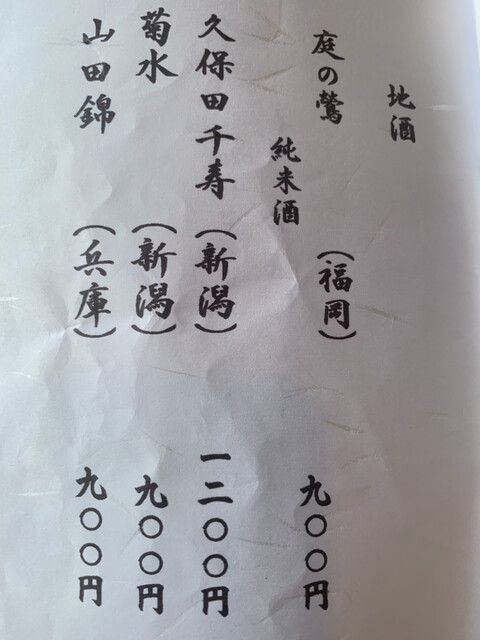 地酒
庭の鶯 (福岡) 九〇〇円
純米酒
久保田千寿 (新潟) 一二〇〇円
菊水 (新潟) 九〇〇円
山田錦 (兵庫) 九〇〇円